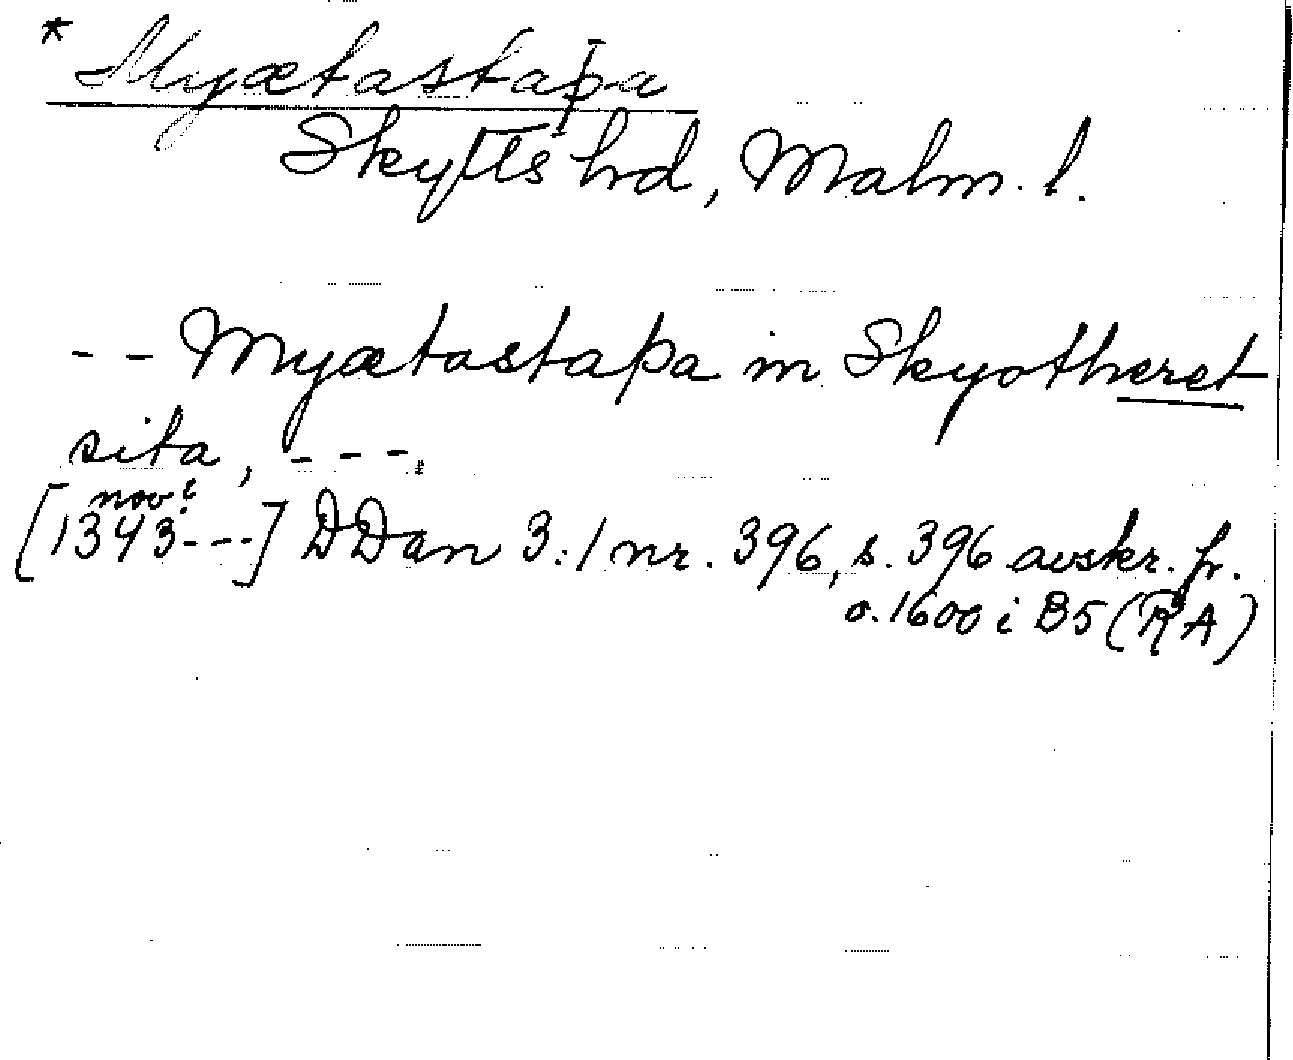 * Myætastapa
Skytts hd, Malm. l.
-- Myætastapa in Skyotheret
sita, ---.
[1343 nov: ---] DDan 3:1 nr. 396, s. 396 avskr. fr.
o. 1600 i B5 (RA)